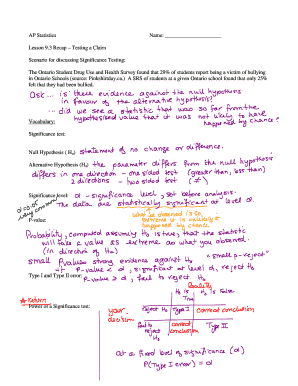 AP Statistics Name:
Lesson 9.3 Recap – Testing a Claim
Scenario for discussing Significance Testing:
The Ontario Student Drug Use and Health Survey found that 29% of students report being a victim of bullying
in Ontario Schools (source: Pinkshirtday.ca). A SRS of students at a given Ontario school found that only 25%
felt that they had been bullied.
Ask ... is there evidence against the null hypothesis
in favour of the alternative hypothesis?
... did we see a statistic that was so far from the
hypothesized value that it was not likely to have
happened by chance?
Vocabulary:
Significance test:
Null Hypothesis (H₀) statement of no change or difference.
Alternative Hypothesis (Hₐ) the parameter differs from the null hypothesis
differs in one direction - one-sided test (greater than, less than)
2 directions - two sided test (≠)
Significance level: α - significance level, set before analysis.
The data are statistically significant at level α.
what we observed is so
extreme it is unlikely to
happened by chance
P-value:
Probability, computed assuming H₀ is true, that the statistic
will take a value as extreme as what you observed.
(in direction of Hₐ)
small Pvalues strong evidence against H₀ "small p-reject"
if P-value < α, significant at level α, reject H₀
P-value ≥ α, fail to reject H₀
Type I and Type II error:
Reality
H₀ is True H₀ is False
* Return
Power of a Significance test:
your decision
Reject H₀ Type I correct conclusion
fail to reject H₀ correct conclusion Type II
at a fixed level of significance (α)
P(Type I error) = α